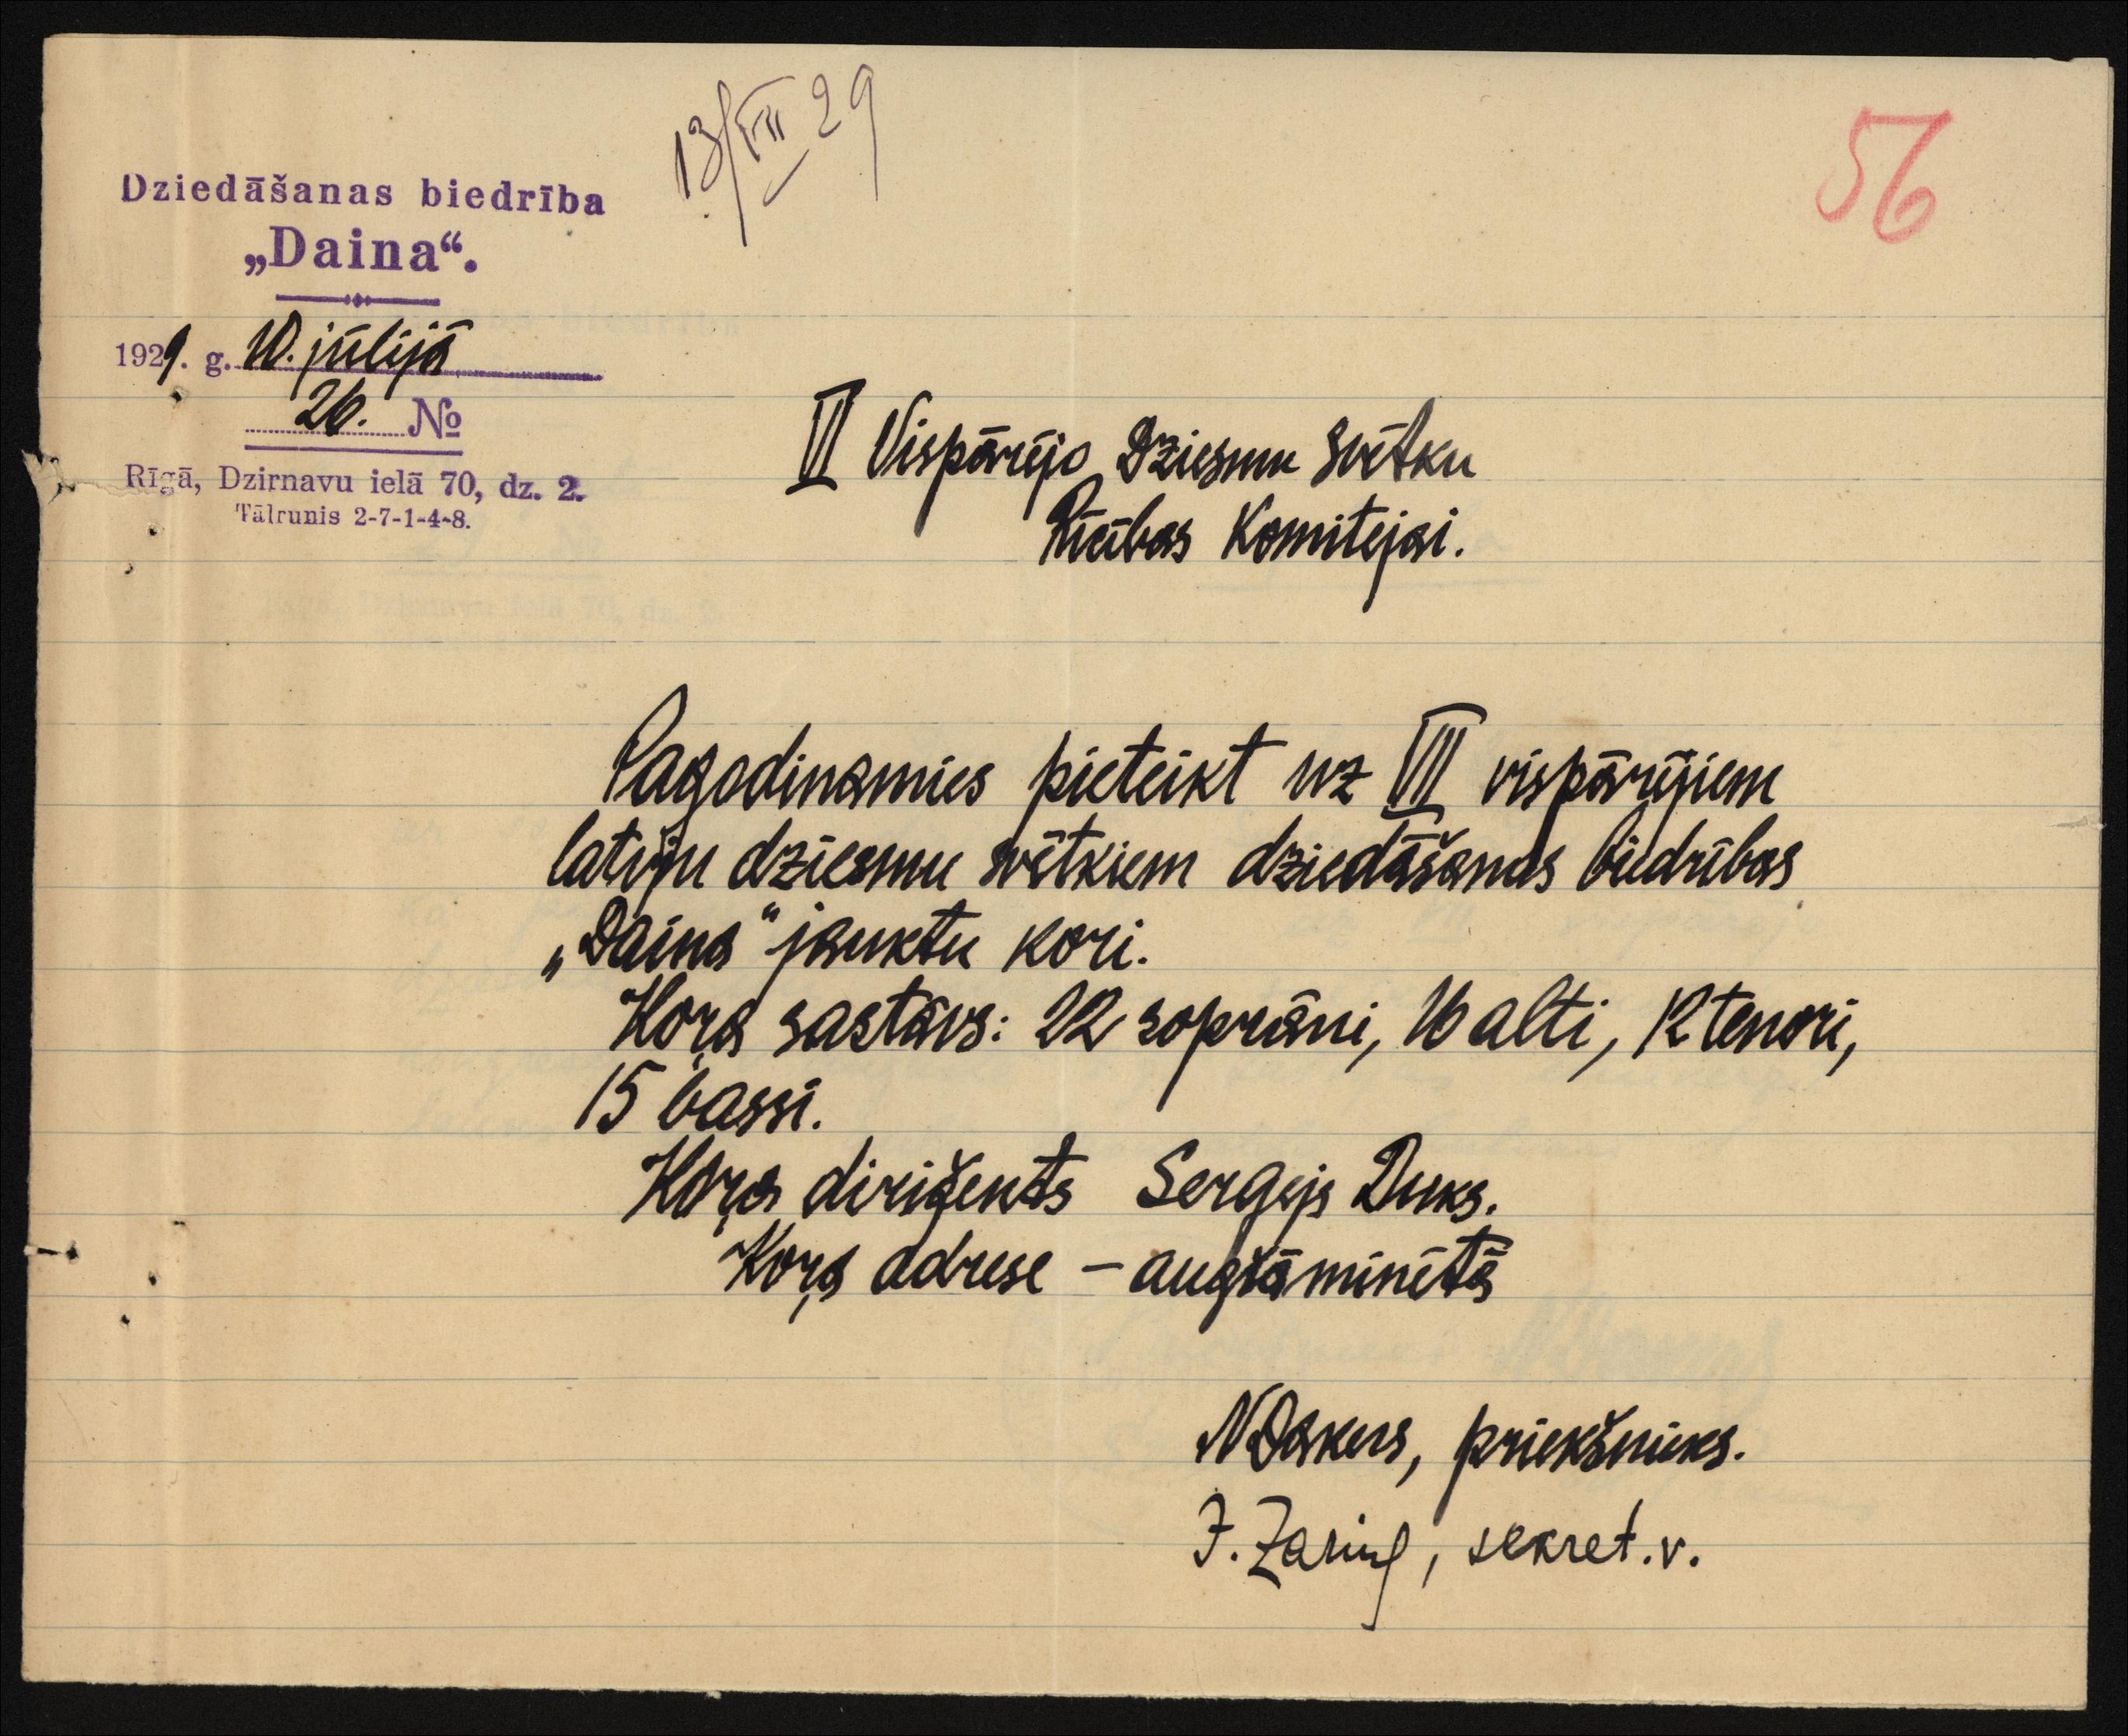 13/VII 29
56
Dziedāšanas biedrība
„Daina“.
1929. g. 10. jūlijā
26. №
Rīgā, Dzirnavu ielā 70, dz. 2.
Tālrunis 2-7-1-4-8.
VI Vispārējo Dziesmu Svētku
Rīcības Komitejai.
Pagodinamies pieteikt uz VII vispārējiem
latvju dziesmu svētkiem dziedāšanas biedrības
„Daina“ jauktu kori.
Koŗa sastāvs: 22 soprāni, 16 alti, 12 tenori,
15 bassi.
Koŗa diriģents Sergejs Duks.
Koŗa adrese – augšāminētā
N Dakers, priekšnieks.
J. Zariņš, sekret. v.